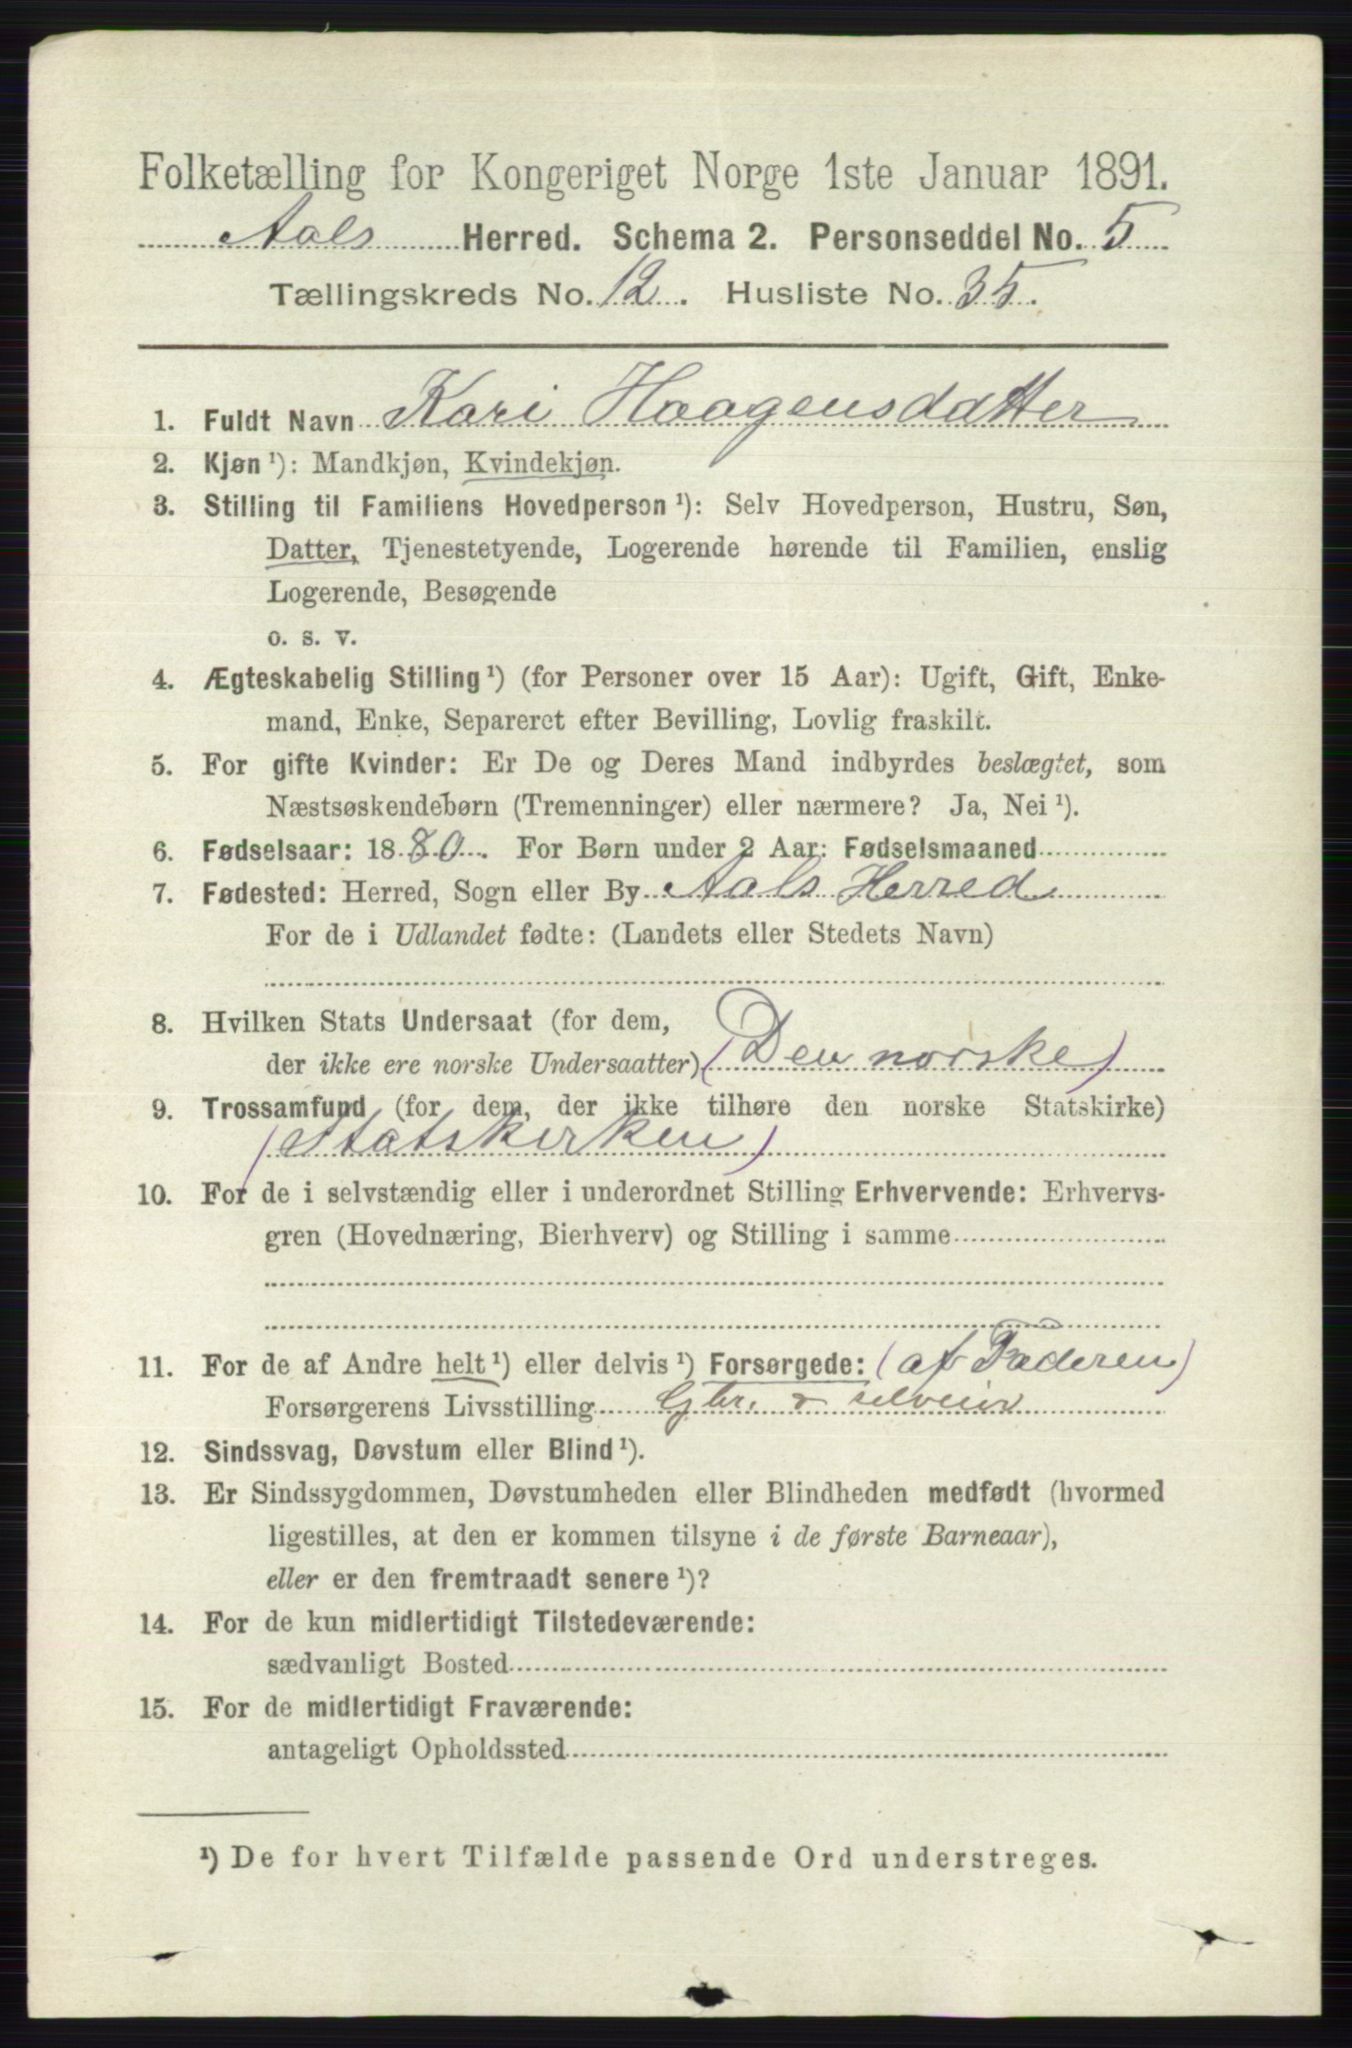 Folketælling for Kongeriget Norge 1ste Januar 1891.
Aals Herred. Schema 2. Personseddel No. 5
Tællingskreds No. 12. Husliste No. 35.
1. Fuldt Navn Kari Haagensdatter
2. Kjøn ¹): Mandkjøn, Kvindekjøn.
3. Stilling til Familiens Hovedperson ¹): Selv Hovedperson, Hustru, Søn,
Datter, Tjenestetyende, Logerende hørende til Familien, enslig
Logerende, Besøgende
o. s. v.
4. Ægteskabelig Stilling ¹) (for Personer over 15 Aar): Ugift, Gift, Enke-
mand, Enke, Separeret efter Bevilling, Lovlig fraskilt.
5. For gifte Kvinder: Er De og Deres Mand indbyrdes beslægtet, som
Næstsøskendebørn (Tremenninger) eller nærmere? Ja, Nei ¹).
6. Fødselsaar: 1880. For Børn under 2 Aar: Fødselsmaaned
7. Fødested: Herred, Sogn eller By Aals Herred
For de i Udlandet fødte: (Landets eller Stedets Navn)
8. Hvilken Stats Undersaat (for dem,
der ikke ere norske Undersaatter) (Den norske)
9. Trossamfund (for dem, der ikke tilhøre den norske Statskirke)
(Statskirken)
10. For de i selvstændig eller i underordnet Stilling Erhvervende: Erhvervs-
gren (Hovednæring, Bierhverv) og Stilling i samme
11. For de af Andre helt ¹) eller delvis ¹) Forsørgede: (af Faderen)
Forsørgerens Livsstilling Gbr. & selveier
12. Sindssvag, Døvstum eller Blind ¹).
13. Er Sindssygdommen, Døvstumheden eller Blindheden medfødt (hvormed
ligestilles, at den er kommen tilsyne i de første Barneaar),
eller er den fremtraadt senere ¹)?
14. For de kun midlertidigt Tilstedeværende:
sædvanligt Bosted
15. For de midlertidigt Fraværende:
antageligt Opholdssted
¹) De for hvert Tilfælde passende Ord understreges.